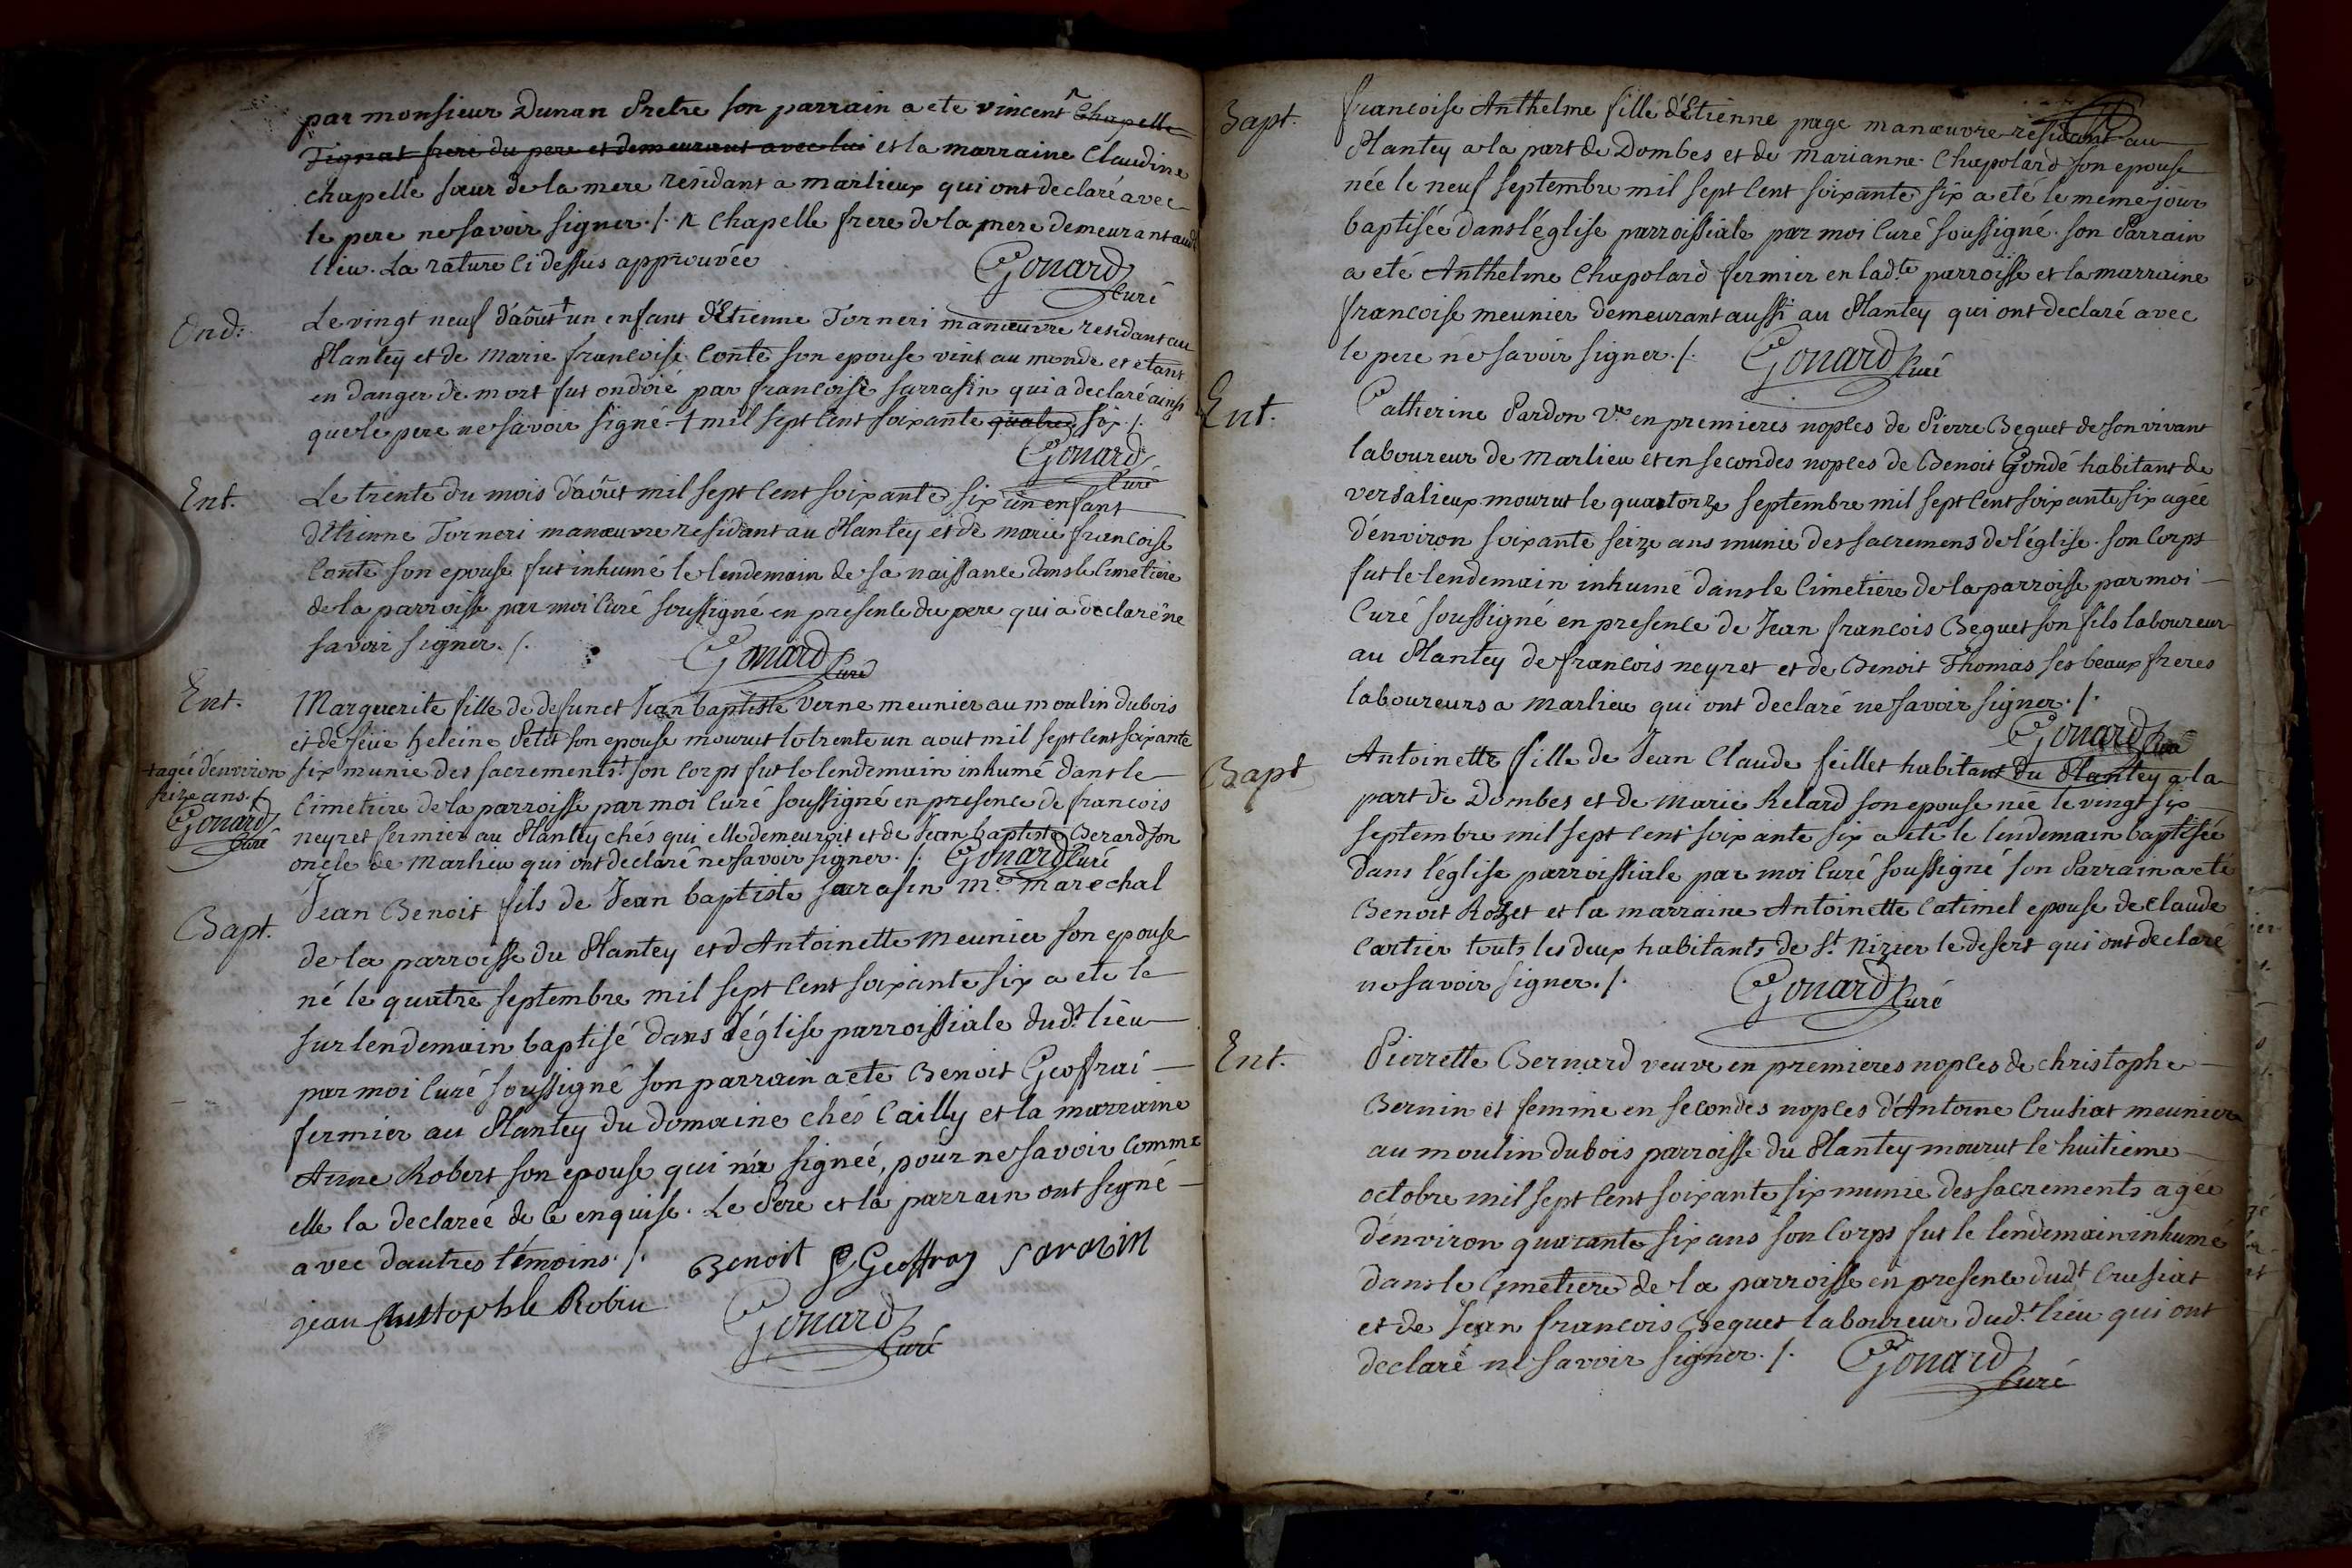 par monsieur Dunan Pretre son parrain a ete vincent ^ Chapelle
Tignat frere du pere et demeurant avec lui et la marraine Claudine
chapelle sœur de la mere residant a marlieux qui ont declaré avec
le pere ne savoir signer ./. ^ Chapelle frere de la mere demeurant aud
lieu. La rature ci dessus approuvée
Gonard
Curé
Ond:
Le vingt neuf d'août + un enfant d'Etienne Torneri manœuvre residant au
Plantey et de Marie francoise Conte son epouse vint au monde et etant
en danger de mort fut ondoié par francoise sarrasin qui a declaré ainsi
que le pere ne savoir signé + mil sept cent soixante quatre six ./.
Gonard
Curé
Ent.
Le trente du mois d'août mil sept cent soixante six un enfant
d'Etienne Torneri manœuvre residant au Plantey et de marie francoise
Conte son epouse fut inhumé le lendemain de sa naissance dans le Cimetiere
de la parroisse par moi Curé soussigné en presence du pere qui a declaré ne
savoir signer ./.
Gonard Curé
Ent.
Marguerite fille de defunct Jean baptiste Verne meunier au moulin dubois
et de feüe heleine Petit son epouse mourut le trente un aout mil sept cent soixante
six munie des sacrements + son Corps fut le lendemain inhumé dans le
+ agée d'environ
seize ans ./.
Gonard
Curé
Cimetiere de la parroisse par moi Curé soussigné en presence de francois
neyret fermier au Plantey chés qui elle demeuroit et de Jean baptiste Berard son
oncle de Marlieu qui ont declaré ne savoir signer ./. Gonard Curé
Bapt.
Jean Benoit fils de Jean baptiste sarrasin me marechal
de la parroisse du Plantey et d'Antoinette meunier son epouse
né le quatre septembre mil sept cent soixante six a eté le
surlendemain baptisé dans l'église parroissiale dudt lieu
par moi Curé soussigné son parrain a ete Benoit Geoffrai
fermier au Plantey du domaine chés Cailly et la marraine
Anne Robert son epouse qui n'a signeé, pour ne savoir Comme
elle la declareé de ce enquise. Le Pere et la parrain ont signé
avec d'autres témoins ./. Benoit Geoffray Saradin
jean Christophle Robin
Gonard
Curé
Bapt.
francoise Anthelme fille d'Etienne page manœuvre residant au
Plantey a la part de Dombes et de Marianne Chapolard son epouse
née le neuf septembre mil sept cent soixante six a eté le meme jour
baptisée dans l'église parroissiale par moi Curé soussigné. son Parrain
a eté Anthelme Chapolard fermier en ladte parroisse et la marraine
francoise meunier demeurant aussi au Plantey qui ont declaré avec
le pere ne savoir signer ./. Gonard Curé
Ent.
Catherine Pardon Ve en premieres noples de Pierre Beguet de son vivant
laboureur de Marlieu et en secondes noples de Benoit Gondé habitant de
versalieux mourut le quatorze septembre mil sept cent soixante six agée
d'environ soixante seize ans munie des sacremens de l'église. son Corps
fut le lendemain inhumé dans le Cimetiere de la parroisse par moi
Curé soussigné en presence de Jean francois Beguet son fils laboureur
au Plantey de francois neyret et de Benoit Thomas ses beaux freres
laboureurs a Marlieu qui ont declaré ne savoir signer ./.
Gonard Curé
Bapt
Antoinette fille de Jean Claude feillet habitant du Plantey a la
part de Dombes et de Marie Relard son epouse née le vingt six
septembre mil sept cent soixante six a eté le lendemain baptisée
dans l'église parroissiale par moi Curé soussigné son Parrain a eté
Benoit Rozet et la marraine Antoinette Catimel epouse de Claude
Cartier touts les deux habitants de St Nizier le desert qui ont declaré
ne savoir signer ./. Gonard Curé
Ent.
Pierrette Bernard veuve en premieres noples de christophe
Bernin et femme en secondes noples d'Antoine Crusiat meunier
au moulin dubois parroisse du Plantey mourut le huitieme
octobre mil sept cent soixante six munie des sacrements agée
d'environ quarante six ans son Corps fut le lendemain inhumé
dans le Cimetiere de la parroisse en presence dudt Crusiat
et de Jean francois Beguet laboureur dudt lieu qui ont
declaré ne savoir signer ./. Gonard
Curé